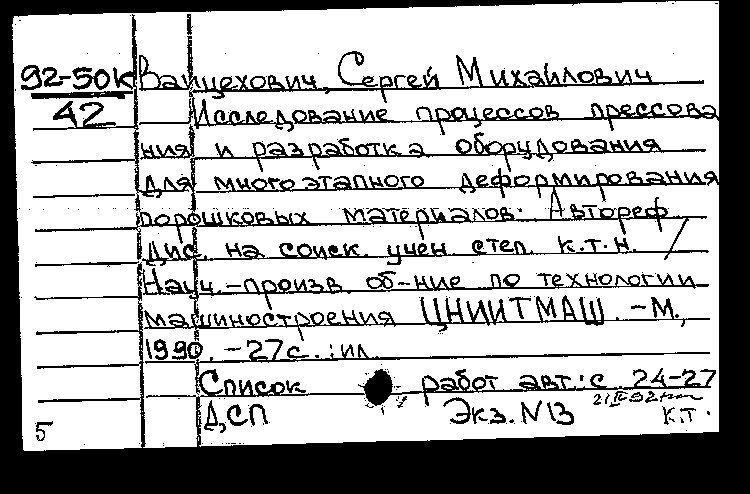 92-50К Вайцехович, Сергей Михайлович
42 Исследование процессов прессова
ния и разработка оборудования
для многоэтапного деформирования
порошковых материалов: Автореф
дис. на соиск. учен степ. к.т.н. /
Науч.-произв. об-ние по технологии
машиностроения ЦНИИТМАШ. -М.,
1990. -27с. :ил
Список работ авт.: с. 24-27
ДСП Экз. N13
5 К.Т.